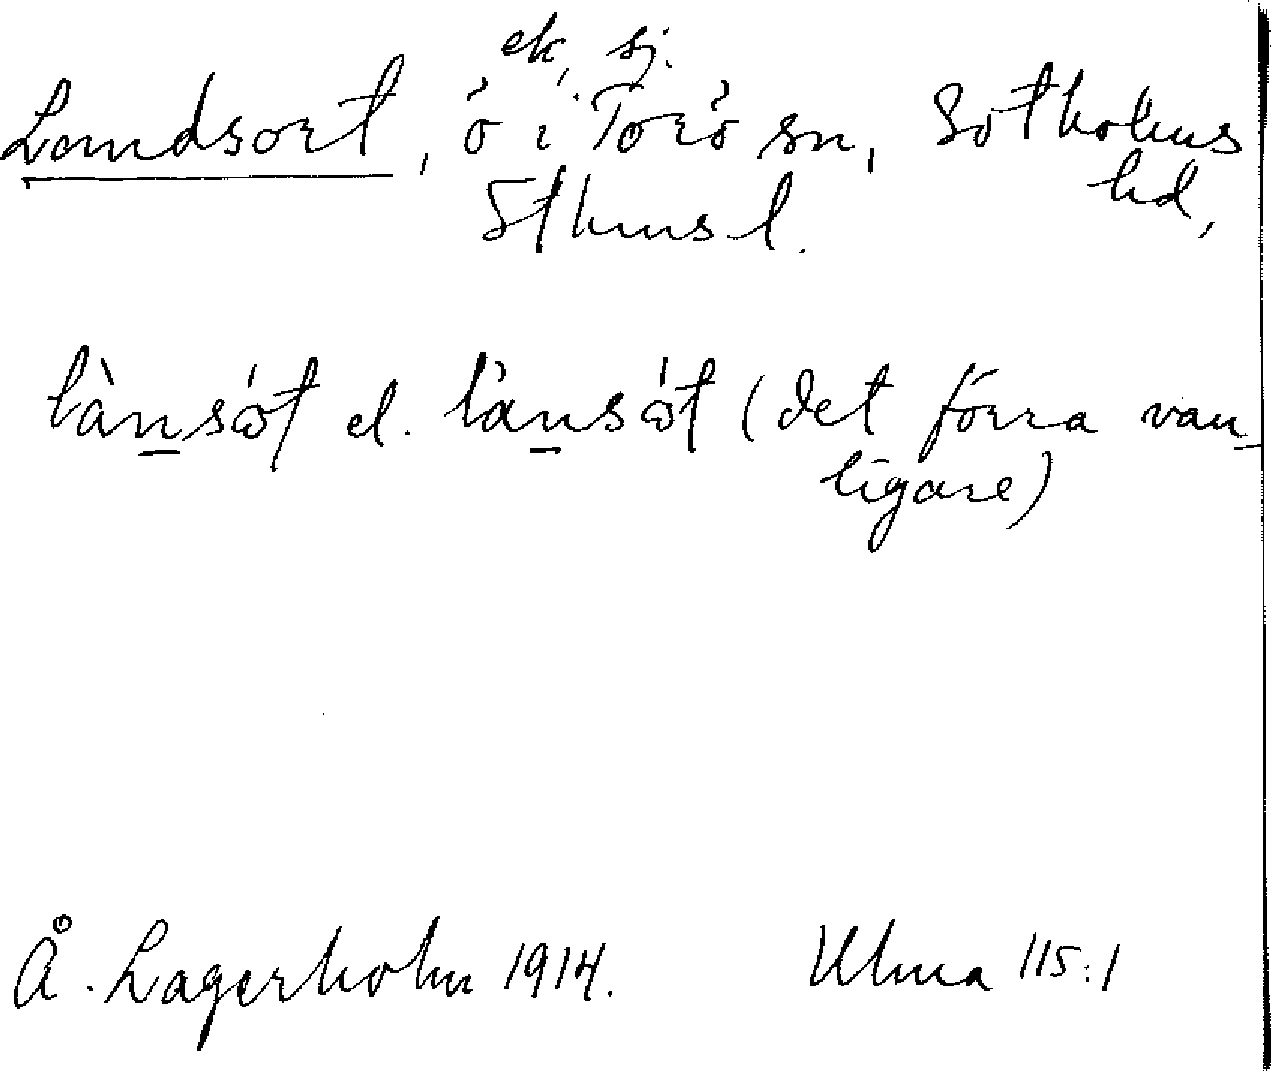 ek, sj.
Landsort, ö i Torö sn, Sotholms
hd,
Sthms l.
lànsót el. lànsót (det förra van-
ligare)
Å. Lagerholm 1914. Ulma 115:1